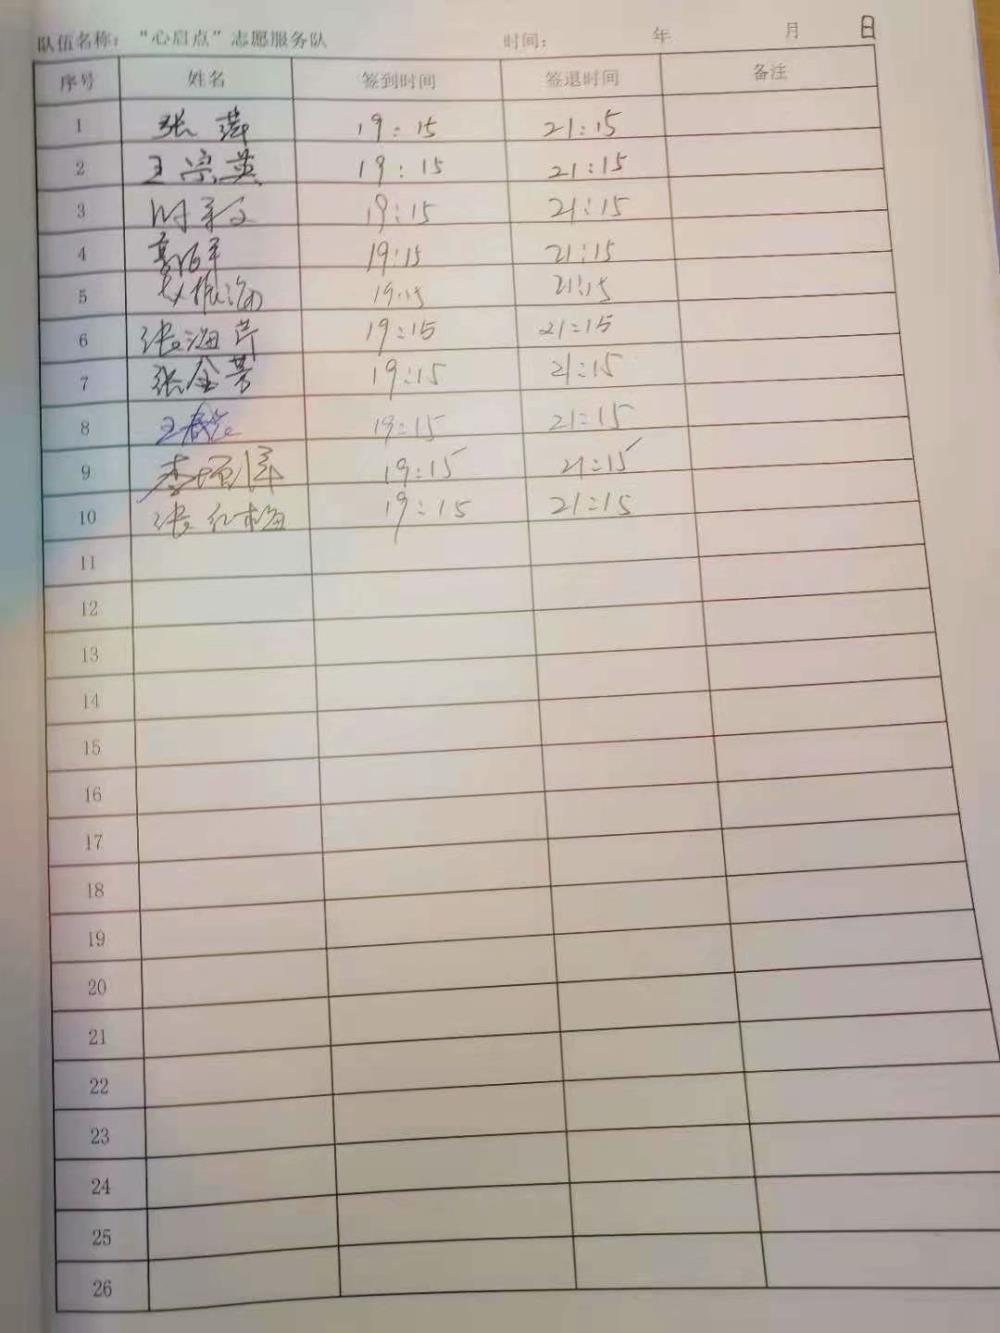 队伍名称：“心启点”志愿服务队 时间： 年 月 日
序号 姓名 签到时间 签退时间 备注
1 张萍 19:15 21:15
2 王宗英 19:15 21:15
3 19:15 21:15
4 19:15 21:15
5 19:15 21:15
6 张海芹 19:15 21:15
7 张金芳 19:15 21:15
8 19:15 21:15
9 19:15 21:15
10 张红梅 19:15 21:15
11
12
13
14
15
16
17
18
19
20
21
22
23
24
25
26